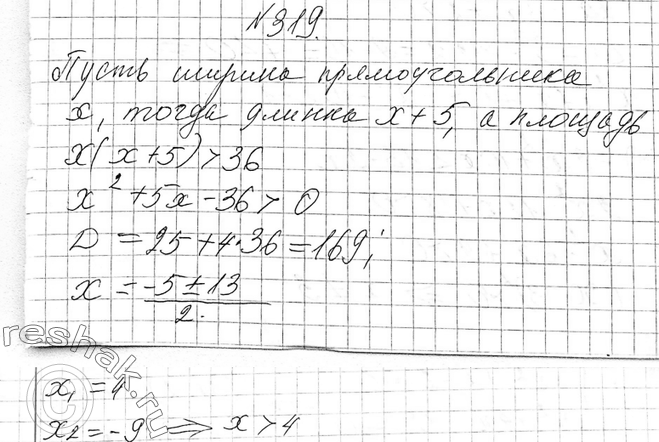 №319.
Пусть ширина прямоугольника
x, тогда длинна x+5, а площадь
x(x+5)>36
x²+5x-36>0
D=25+4·36=169;
x = (-5±13)/2.
x₁=4
x₂=-9 ⇒ x>4
reshak.ru